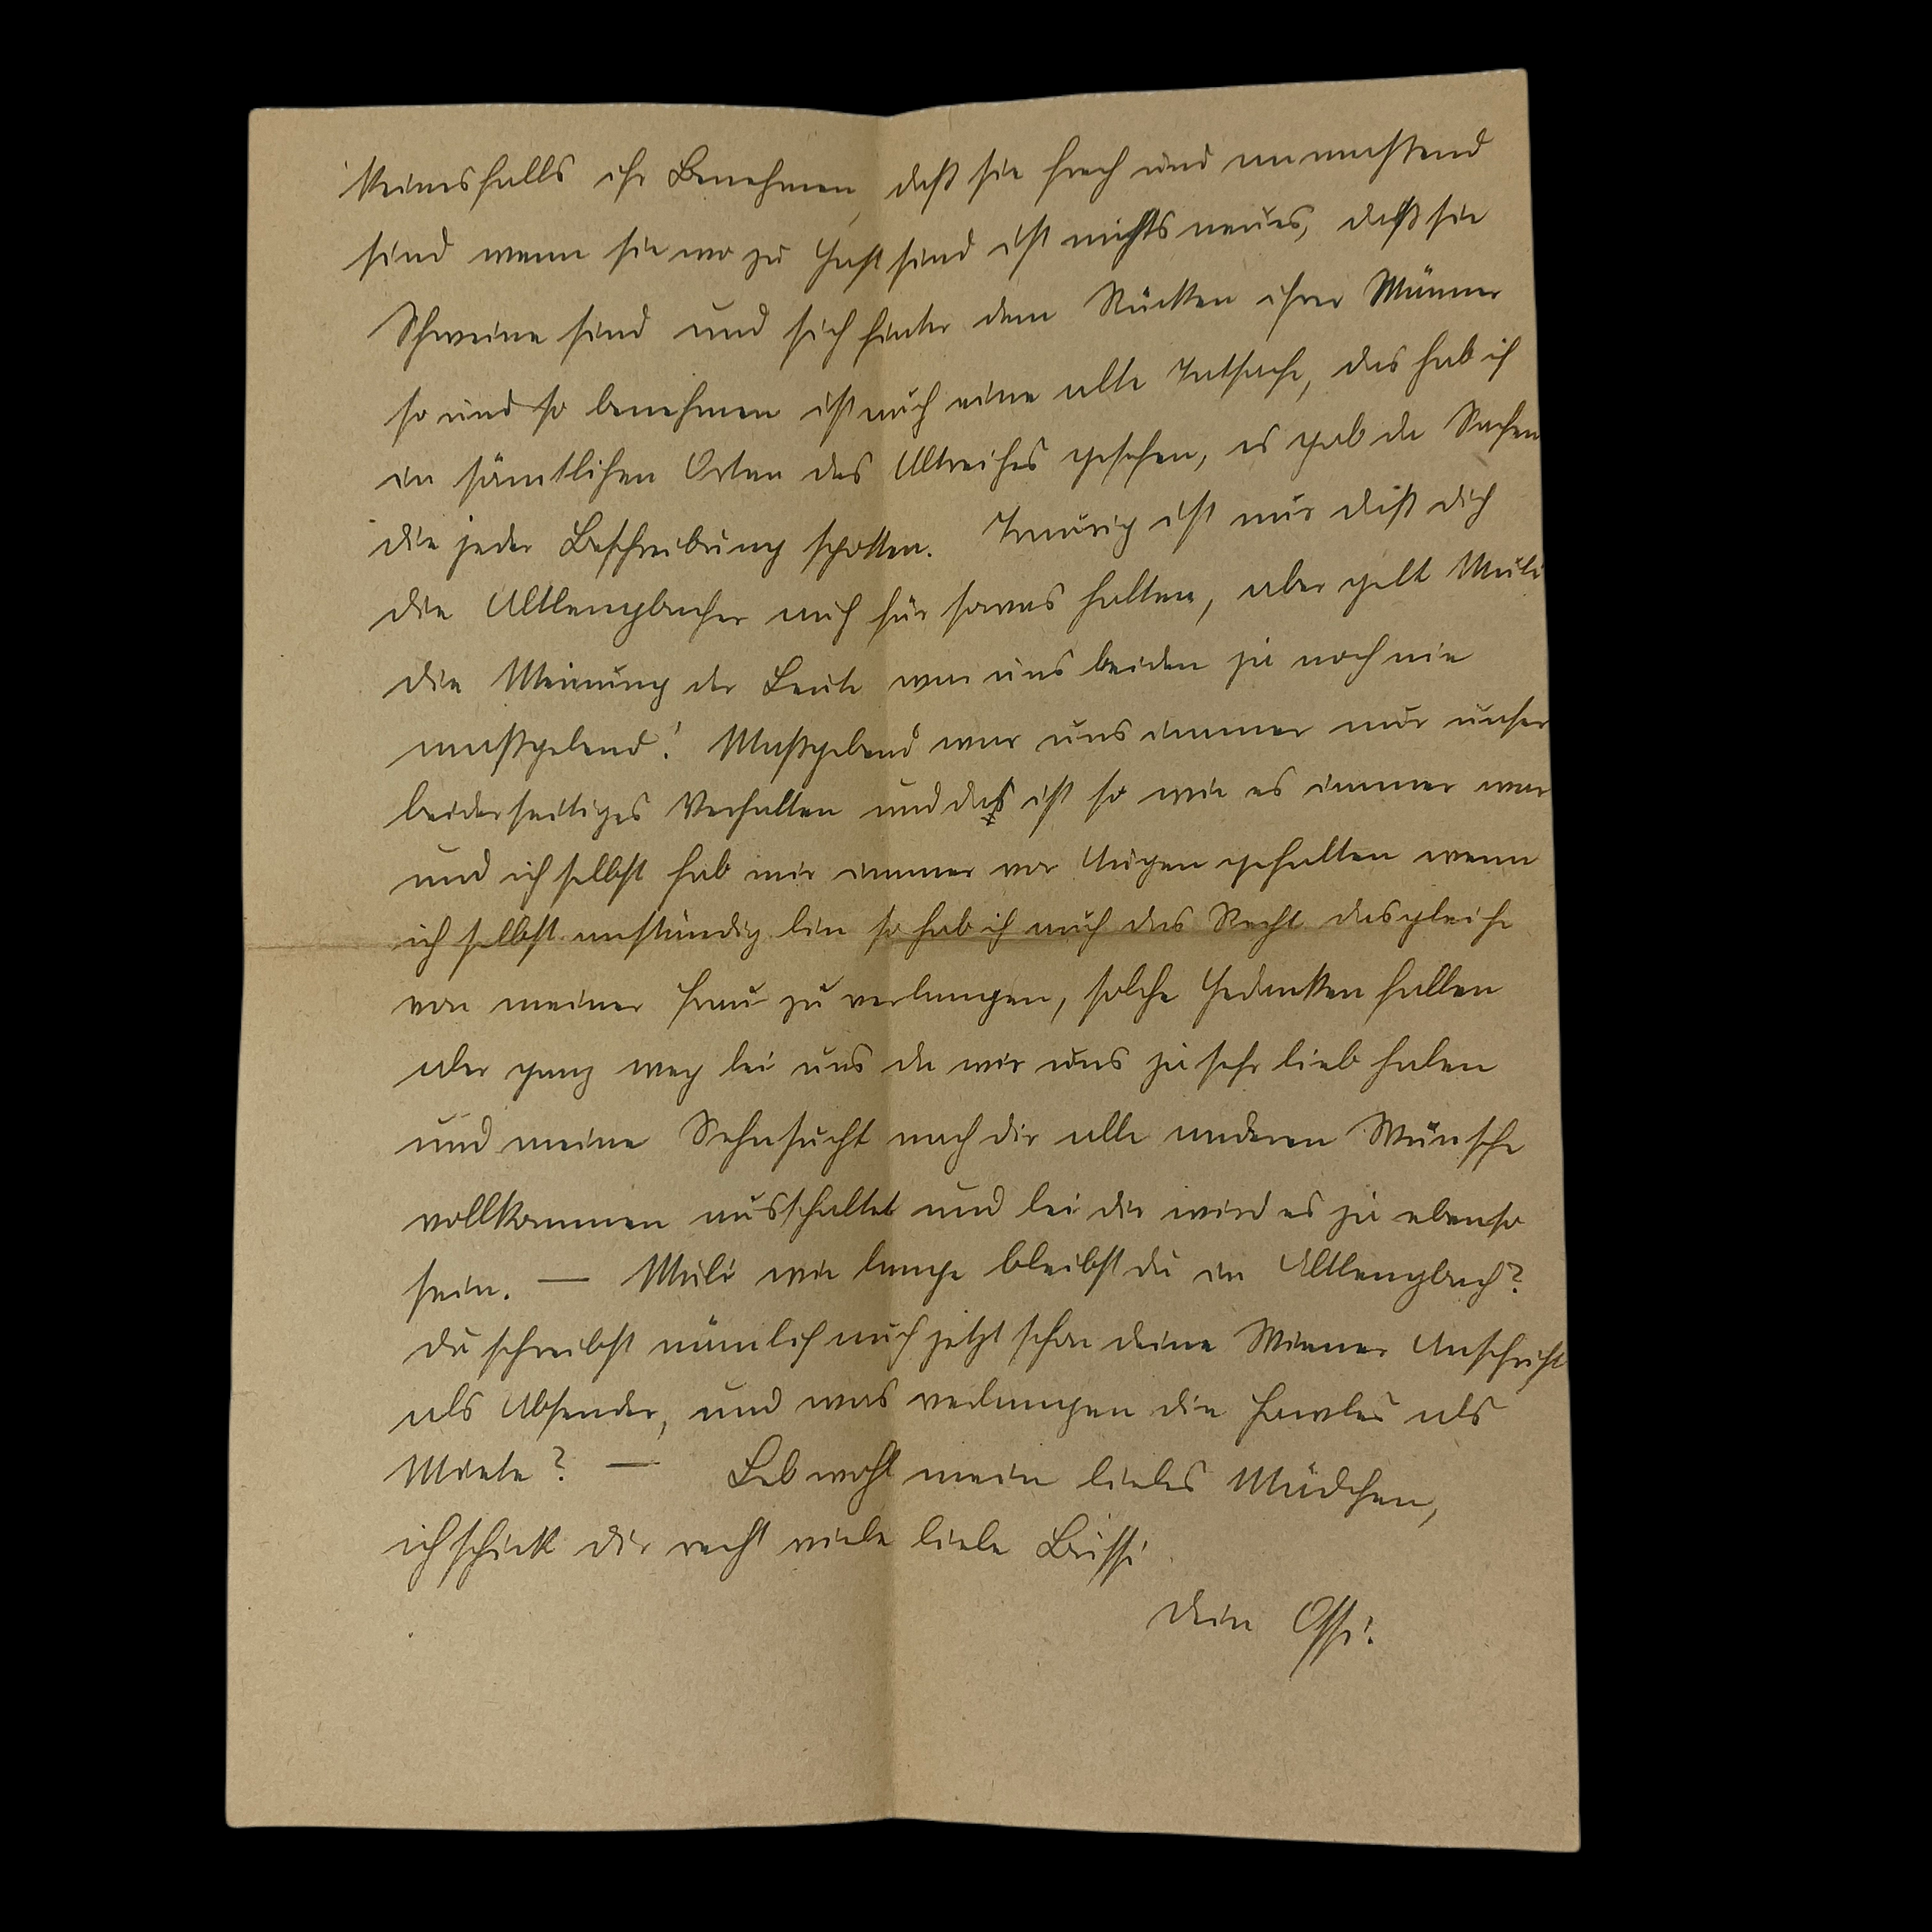 keinesfalls ihr Benehmen, daß sie frech und anmaßend
sind wenn sie wo zu Gast sind ist nichts neues, daß sie
Schweine sind und sich hinter dem Rücken ihrer Männer
so und so benehmen ist auch eine alte Tatsache, das hab ich
in sämtlichen Orten des Altreiches gesehen, es gab da Sachen
die jeder Beschreibung spotten. Traurig ist nur daß dich
die Altlengbacher auch für sowas halten, aber gelt Muli
die Meinung der Leute war uns beiden ja noch nie
maßgebend! Maßgebend war uns immer nur unser
beiderseitiges Verhalten und das ist so wie es immer war
und ich selbst hab mir immer vor Augen gehalten wenn
ich selbst anständig bin so hab ich auch das Recht dasgleiche
von meiner Frau zu verlangen, solche Gedanken fallen
aber ganz weg bei uns da wir uns ja sehr lieb haben
und meine Sehnsucht nach dir alle anderen Wünsche
vollkommen ausschaltet und bei dir wird es ja ebenso
sein. — Muli wie lange bleibst du in Altlengbach?
du schreibst nämlich auch jetzt schon deine Wiener Anschrift
als Absender, und was verlangen die als
Miete? — Leb wohl mein liebes Mädchen,
ich schick dir recht viele liebe Bussi
dein Ossi!